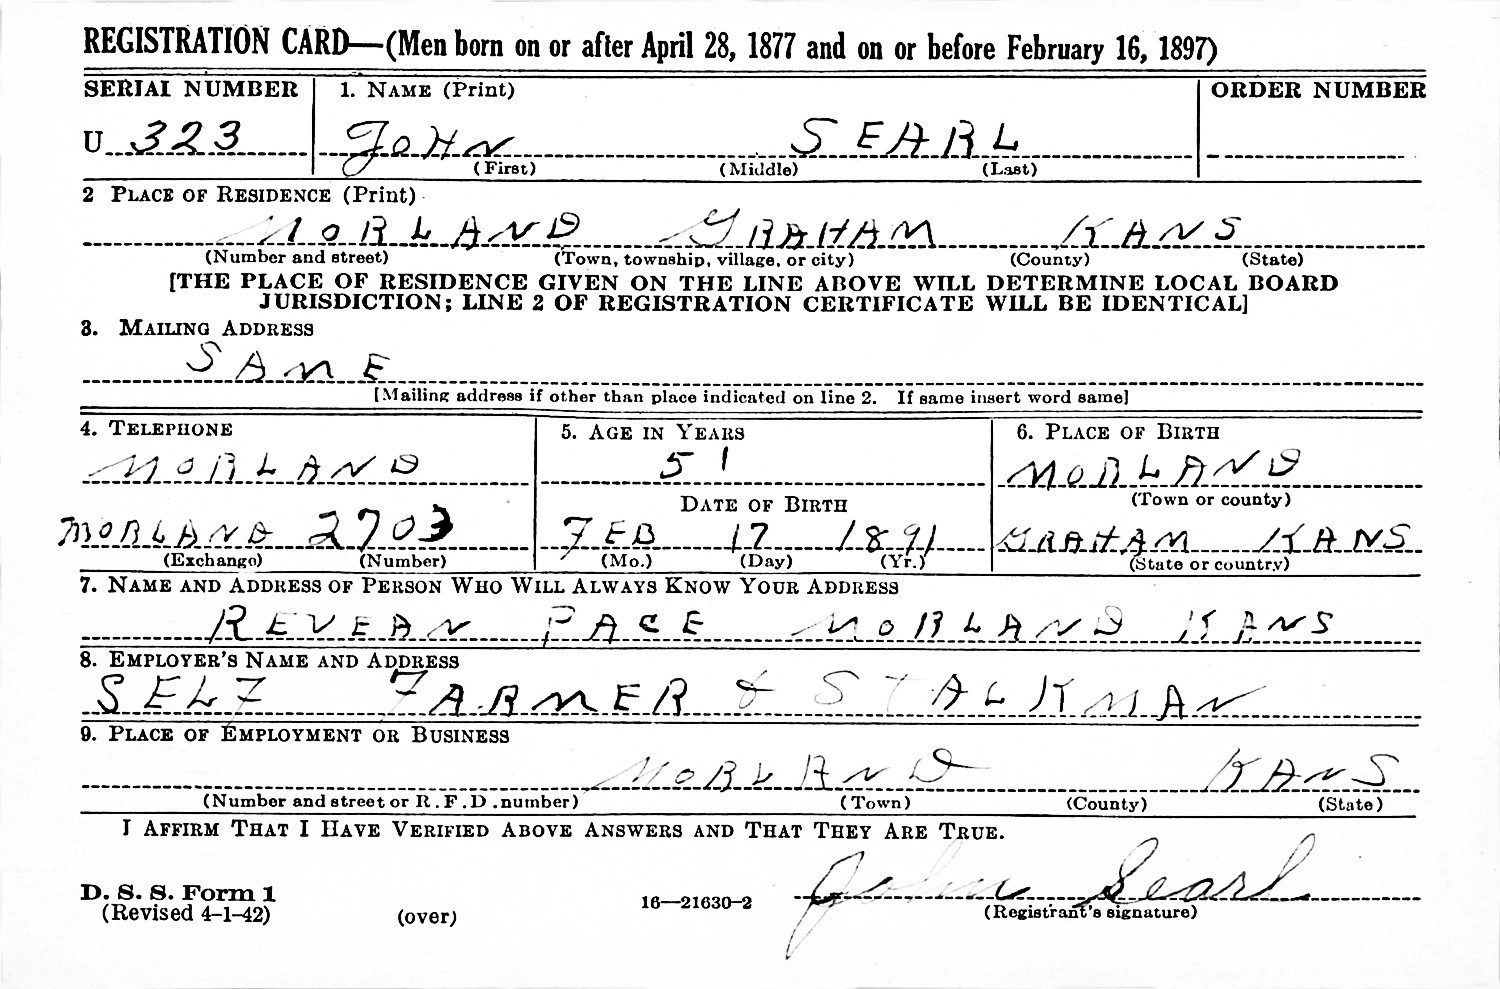 REGISTRATION CARD—(Men born on or after April 28, 1877 and on or before February 16, 1897)
SERIAL NUMBER 1. NAME (Print) ORDER NUMBER
U 323 JOHN SEARL
(First) (Middle) (Last)
2 PLACE OF RESIDENCE (Print)
MORLAND GRAHAM KANS
(Number and street) (Town, township, village, or city) (County) (State)
[THE PLACE OF RESIDENCE GIVEN ON THE LINE ABOVE WILL DETERMINE LOCAL BOARD
JURISDICTION; LINE 2 OF REGISTRATION CERTIFICATE WILL BE IDENTICAL]
3. MAILING ADDRESS
SAME
[Mailing address if other than place indicated on line 2. If same insert word same]
4. TELEPHONE 5. AGE IN YEARS 6. PLACE OF BIRTH
MORLAND 51 MORLAND
DATE OF BIRTH (Town or county)
MORLAND 2703 FEB 17 1891 GRAHAM KANS
(Exchange) (Number) (Mo.) (Day) (Yr.) (State or country)
7. NAME AND ADDRESS OF PERSON WHO WILL ALWAYS KNOW YOUR ADDRESS
REVEAN PACE MORLAND KANS
8. EMPLOYER'S NAME AND ADDRESS
SELF FARMER & STALKMAN
9. PLACE OF EMPLOYMENT OR BUSINESS
MORLAND KANS
(Number and street or R. F. D. number) (Town) (County) (State)
I AFFIRM THAT I HAVE VERIFIED ABOVE ANSWERS AND THAT THEY ARE TRUE.
John Searl
D. S. S. Form 1
(Revised 4-1-42) (over) 16—21630-2 (Registrant's signature)